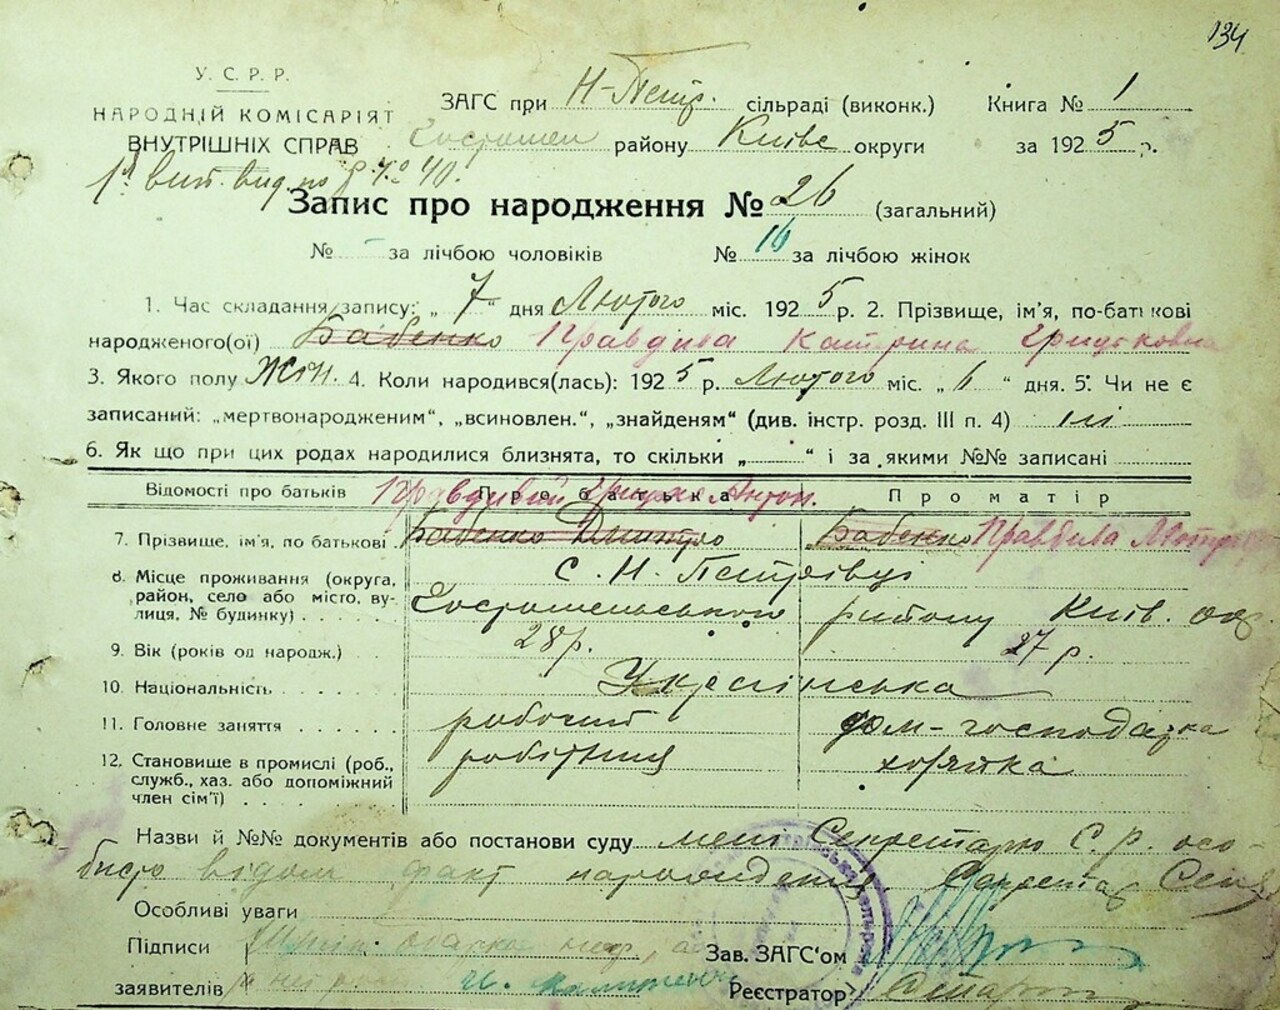 134
У. С. Р. Р.
НАРОДНІЙ КОМІСАРІЯТ
ВНУТРІШНІХ СПРАВ
ЗАГС при Н-Петр. сільраді (виконк.) Книга № 1
району Київс округи за 1925 р.
Запис про народження № 26 (загальний)
№ - за лічбою чоловіків № 16 за лічбою жінок
1. Час складання запису: „ 7 “ дня Лютого міс. 1925 р. 2. Прізвище, ім'я, по-батькові
народженого(ої) Бабенко Правдива Катрина Грицьковна
3. Якого полу Жін. 4. Коли народився(лась): 1925 р. Лютого міс. „ 6 “ дня. 5. Чи не є
записаний: „мертвонародженим“, „всиновлен.“, „знайденям“ (див. інстр. розд. III п. 4) ні
6. Як що при цих родах народилися близнята, то скільки „ “ і за якими №№ записані
Відомості про батьків Про батька Про матір
Правдивий Грицько Антон.
7. Прізвище, ім'я, по батькові Бабенко Дмитро Бабенко Правдива
8. Місце проживання (округа, район, село або місто, вулиця, № будинку)
С. Н. Петрівці
Гостомельського району Київ. окр.
9. Вік (років од народж.) 28 р. 27 р.
10. Національність Українська
11. Головне заняття робочий дом-господарка
12. Становище в промислі (роб., служб., хаз. або допоміжний член сім'ї) робітник
Назви й №№ документів або постанови суду мені Секретарю С. Р. осо-
бисто відом факт народження Секретар
Особливі уваги
Підписи
заявителів
Зав. ЗАГС'ом
Реєстратор